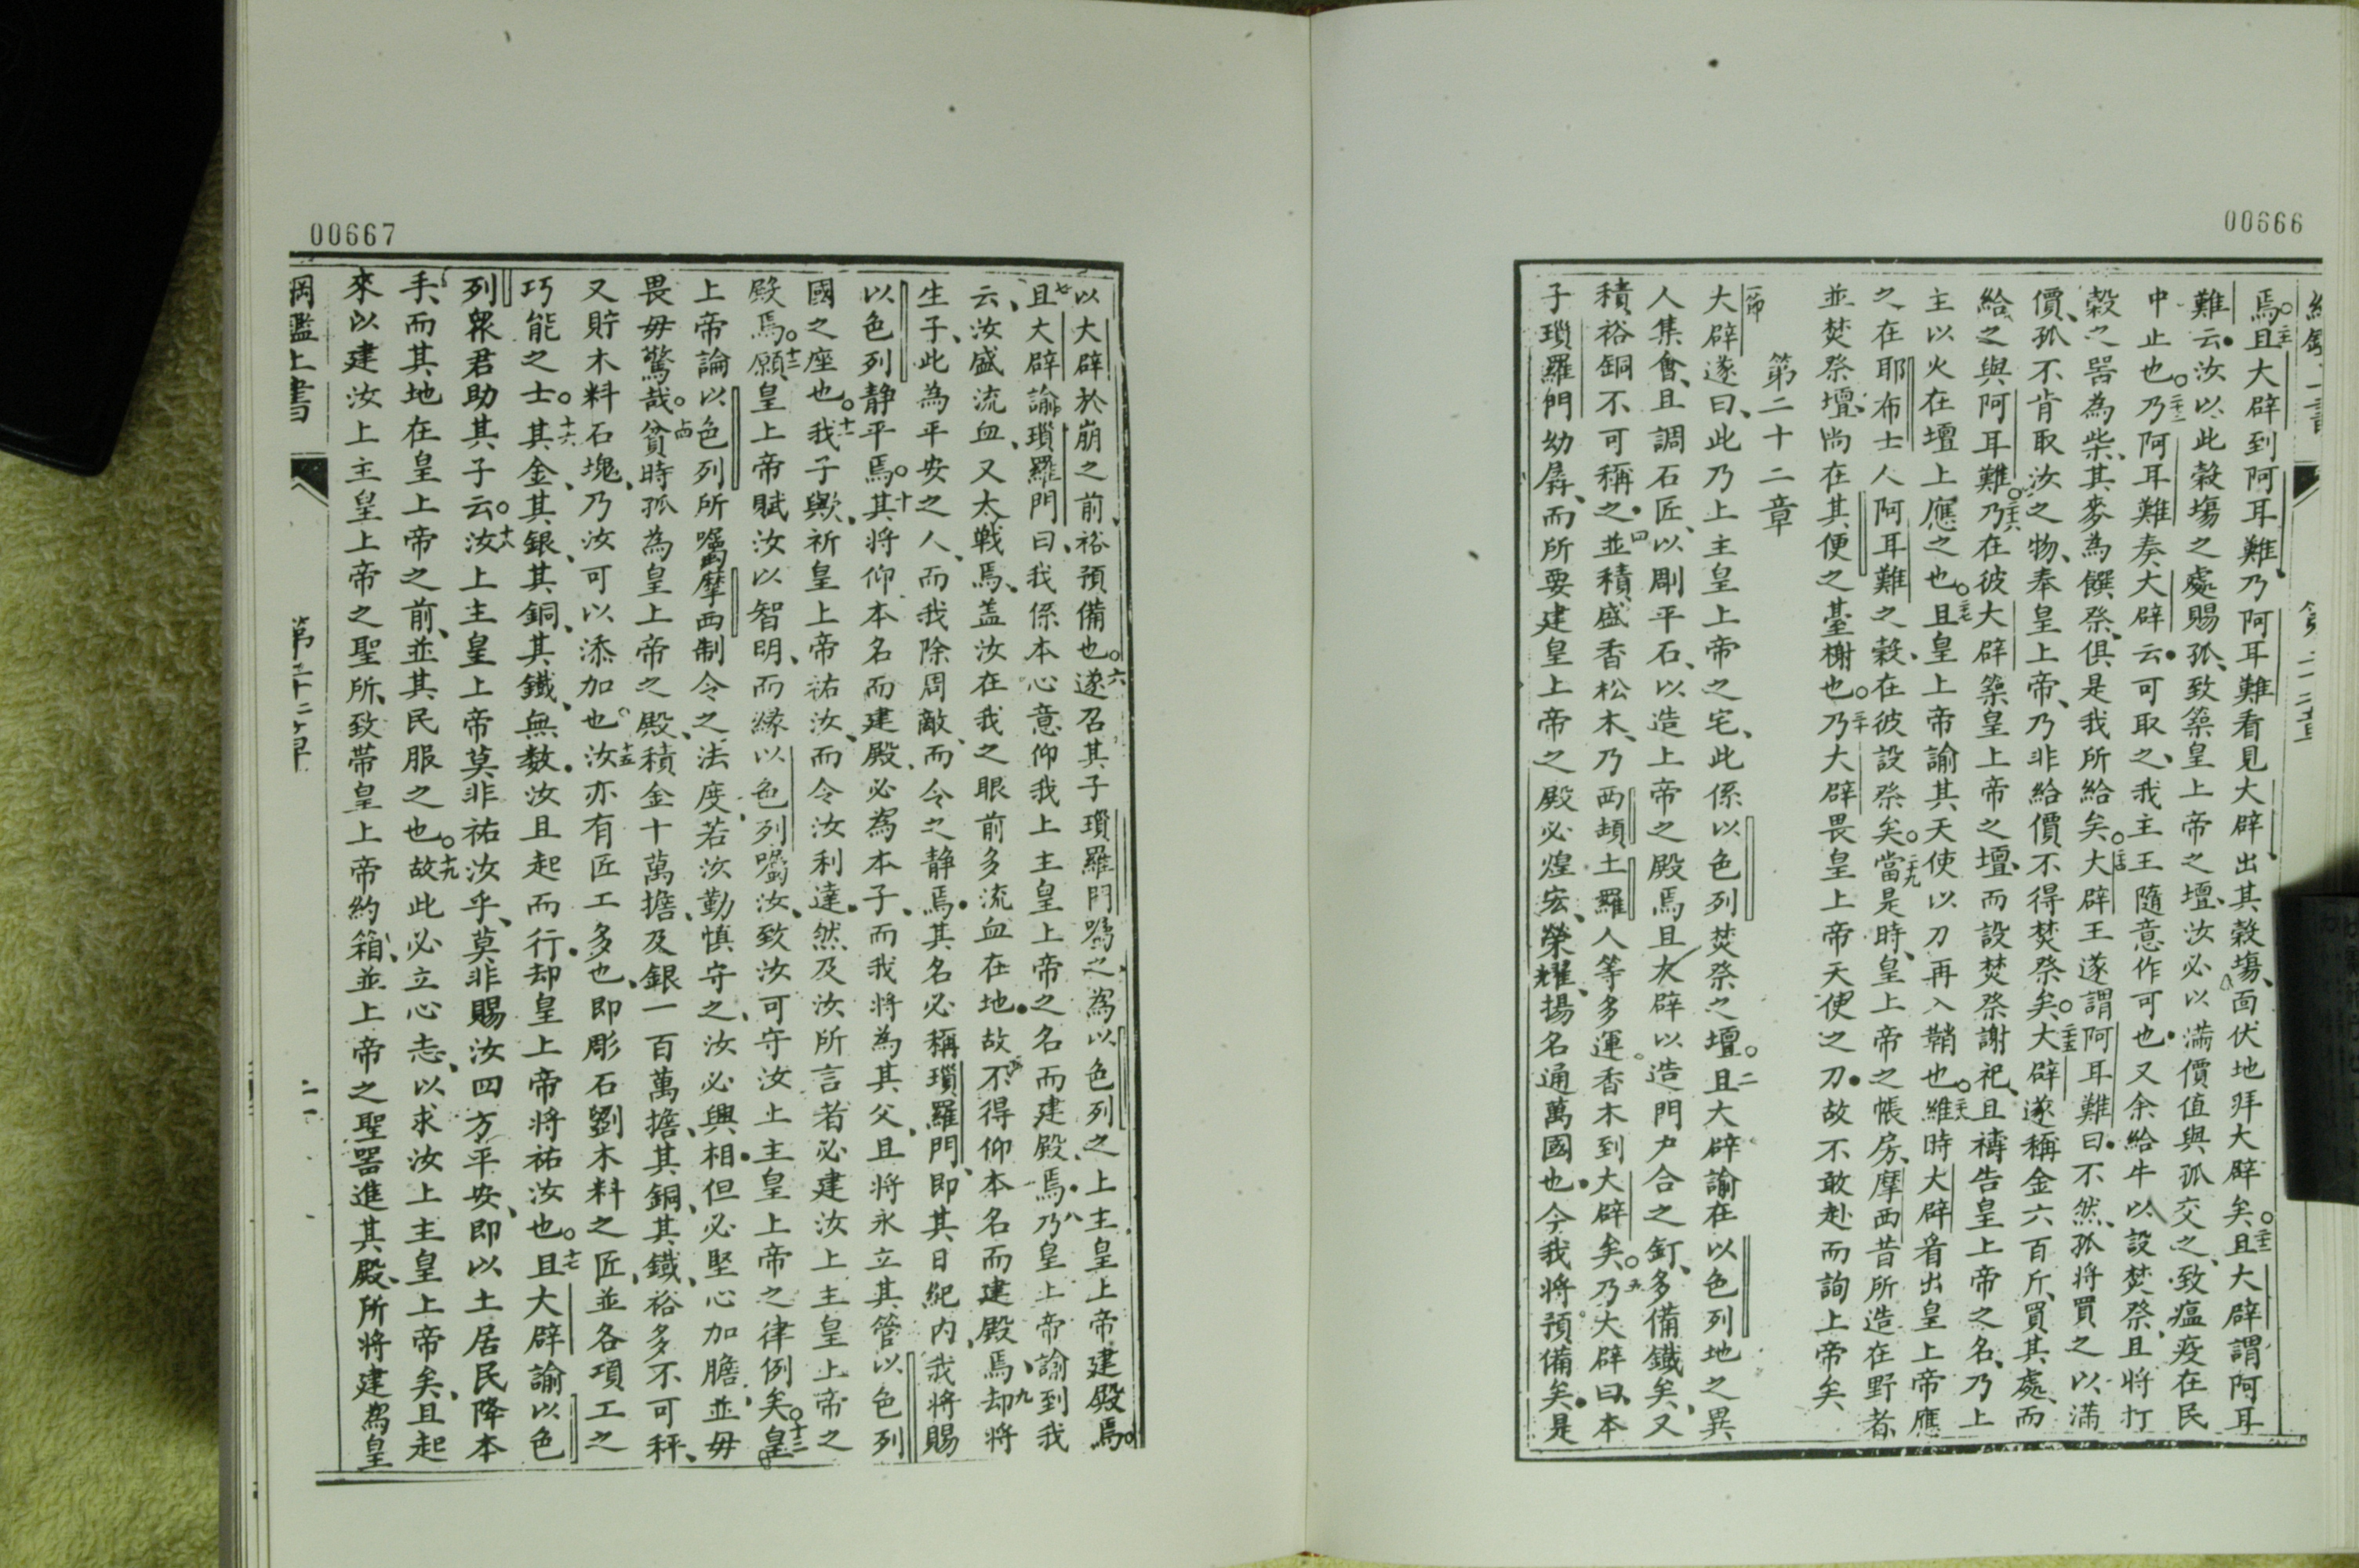 00666
焉。二十一且大辟到阿耳難、乃阿耳難看見大辟、出其穀塲、面伏地拜大辟矣。二十二且大辟謂阿耳
難云、汝以此穀塲之處賜孤、致築皇上帝之壇、汝必以滿價值與孤交之、致瘟疫在民
中止也。二十三乃阿耳難奏大辟云、可取之、我主王隨意作可也、又余給牛以設焚祭、且將打
穀之噐為柴、其麥為饌祭、俱是我所給矣。二十四大辟王遂謂阿耳難曰、不然、孤將買之以滿
價、孤不肯取汝之物、奉皇上帝、乃非給價不得焚祭矣。二十五大辟遂稱金六百斤、買其處、而
給之與阿耳難。二十六乃在彼大辟築皇上帝之壇、而設焚祭謝祀、且禱告皇上帝之名、乃上
主以火在壇上應之也。二十七且皇上帝諭其天使以刀再入鞘也。二十八維時大辟看出皇上帝應
之在耶布士人阿耳難之穀、在彼設祭矣。二十九當是時、皇上帝之帳房、摩西昔所造在野者、
並焚祭壇、尚在其便之䑓榭也。三十乃大辟畏皇上帝天使之刀、故不敢赴而詢上帝矣
第二十二章
一節大辟遂曰、此乃上主皇上帝之宅、此係以色列焚祭之壇。二且大辟諭在以色列地之異
人集會、且調石匠、以剛平石、以造上帝之殿焉、且大辟以造門戶合之釘、多備鐵矣、又
積裕銅不可稱之、四並積盛香松木、乃西頓土羅人等多運香木到大辟矣。五乃大辟曰、本
子瑣羅門幼孱、而所要建皇上帝之殿必煌宏、榮耀、揚名通萬國也、今我將預備矣、是
00667
以大辟於崩之前、裕預備也。六遂召其子瑣羅門囑之為以色列之上主皇上帝建殿焉。
七且大辟諭瑣羅門曰、我係本心意仰我上主皇上帝之名而建殿焉、八乃皇上帝諭到我
云、汝盛流血、又太戰焉、盖汝在我之眼前多流血在地、故不得仰本名而建殿焉、九却將
生子、此為平安之人、而我除周敵、而令之静焉、其名必稱瑣羅門、即其日紀内、我將賜
以色列静平焉。十其將仰本名而建殿、必為本子、而我將為其父、且將永立其管以色列
國之座也。十一我子歟、祈皇上帝祐汝、而令汝利達、然及汝所言者、必建汝上主皇上帝之
殿焉。十二願皇上帝賦汝以智明、而縁以色列囑汝、致汝可守汝上主皇上帝之律例矣。十三皇
上帝論以色列所囑摩西制令之法度、若汝勤慎守之、汝必興相、但必堅心加膽、並毋
畏毋驚哉。十四貧時孤為皇上帝之殿、積金十萬擔、及銀一百萬擔、其銅、其鐵、裕多不可秤、
又貯木料石塊、乃汝可以添加也。十五汝亦有匠工多也、即彫石劉木料之匠、並各項工之
巧能之士。十六其金、其銀、其銅、其鐵、無数、汝且起而行、却皇上帝將祐汝也。十七且大辟諭以色
列衆君助其子云。十八汝上主皇上帝莫非祐汝乎、莫非賜汝四方平安、即以土居民降本
手、而其地在皇上帝之前、並其民服之也。十九故此必立心志、以求汝上主皇上帝矣、且起
來以建汝上主皇上帝之聖所、致帶皇上帝約箱、並上帝之聖噐進其殿、所將建為皇
綱鑑上書 第二十二章